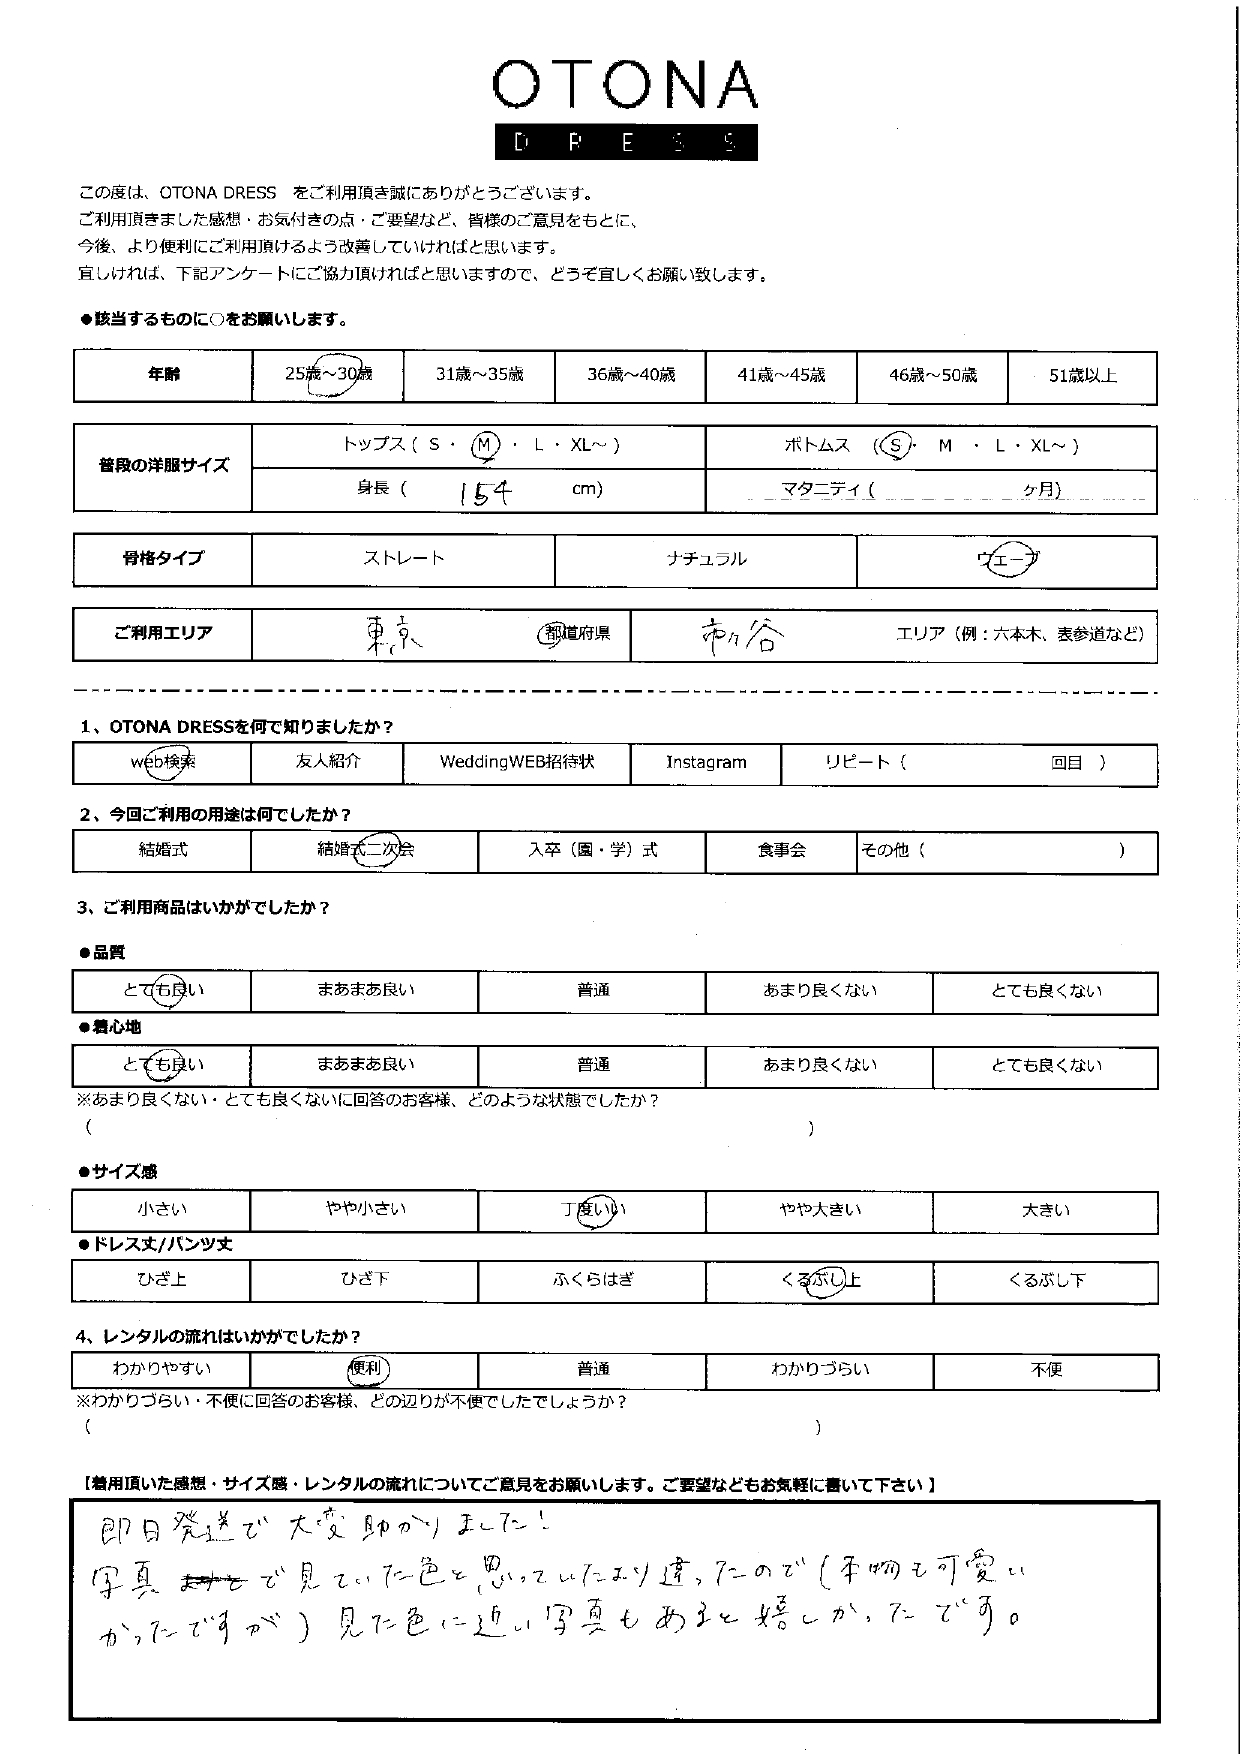 OTONA
DRESS
この度は、OTONA DRESS をご利用頂き誠にありがとうございます。
ご利用頂きました感想・お気付きの点・ご要望など、皆様のご意見をもとに、
今後、より便利にご利用頂けるよう改善していければと思います。
宜しければ、下記アンケートにご協力頂ければと思いますので、どうぞ宜しくお願い致します。
●該当するものに○をお願いします。
年齢 25歳～30歳 31歳～35歳 36歳～40歳 41歳～45歳 46歳～50歳 51歳以上
普段の洋服サイズ トップス ( S ・ M ・ L ・ XL～ ) ボトムス ( S ・ M ・ L ・ XL～ )
身長 ( 154 cm) マタニティ ( ヶ月)
骨格タイプ ストレート ナチュラル ウェーブ
ご利用エリア 東京 都道府県 市ヶ谷 エリア（例：六本木、表参道など）
1、OTONA DRESSを何で知りましたか？
web検索 友人紹介 WeddingWEB招待状 Instagram リピート ( 回目 )
2、今回ご利用の用途は何でしたか？
結婚式 結婚式二次会 入卒（園・学）式 食事会 その他 ( )
3、ご利用商品はいかがでしたか？
●品質
とても良い まあまあ良い 普通 あまり良くない とても良くない
●着心地
とても良い まあまあ良い 普通 あまり良くない とても良くない
※あまり良くない・とても良くないに回答のお客様、どのような状態でしたか？
( )
●サイズ感
小さい やや小さい 丁度いい やや大きい 大きい
●ドレス丈/パンツ丈
ひざ上 ひざ下 ふくらはぎ くるぶし上 くるぶし下
4、レンタルの流れはいかがでしたか？
わかりやすい 便利 普通 わかりづらい 不便
※わかりづらい・不便に回答のお客様、どの辺りが不便でしたでしょうか？
( )
【着用頂いた感想・サイズ感・レンタルの流れについてご意見をお願いします。ご要望などもお気軽に書いて下さい】
即日発送で大変助かりました！
写真で見ていた色と思っていたより違ったので(本物も可愛い
かったですが)見た色に近い写真もあると嬉しかったです。